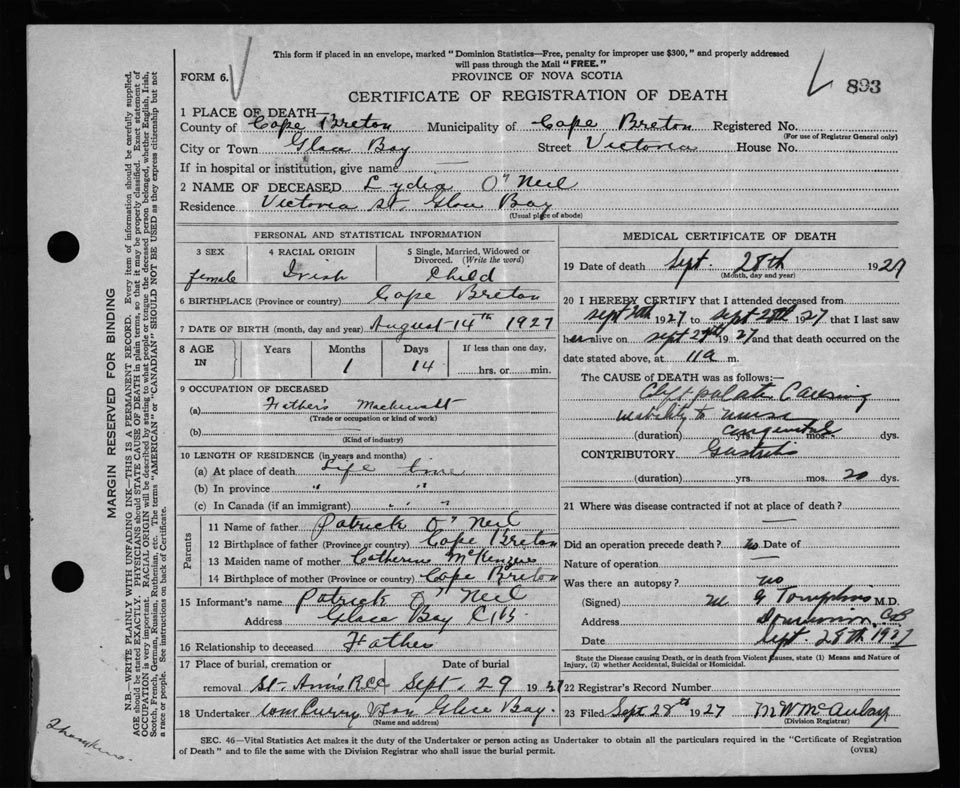 This form if placed in an envelope, marked "Dominion Statistics—Free, penalty for improper use $300," and properly addressed
will pass through the Mail "FREE."
FORM 6.
PROVINCE OF NOVA SCOTIA
893
CERTIFICATE OF REGISTRATION OF DEATH
1 PLACE OF DEATH—
County of Cape Breton Municipality of Cape Breton Registered No.
(For use of Registrar General only)
City or Town Glace Bay Street Victoria House No.
If in hospital or institution, give name —
2 NAME OF DECEASED Lydia O'Neil
Residence Victoria St. Glace Bay
(Usual place of abode)
PERSONAL AND STATISTICAL INFORMATION
3 SEX female
4 RACIAL ORIGIN Irish
5 Single, Married, Widowed or Divorced. (Write the word) Child
6 BIRTHPLACE (Province or country) Cape Breton
7 DATE OF BIRTH (month, day and year) August 14th 1927
8 AGE IN Years Months 1 Days 14 If less than one day, hrs. or min.
9 OCCUPATION OF DECEASED
(a) Father's
(Trade or occupation or kind of work)
(b)
(Kind of industry)
10 LENGTH OF RESIDENCE (in years and months)
(a) At place of death Life time
(b) In province " "
(c) In Canada (if an immigrant) " "
Parents
11 Name of father Patrick O'Neil
12 Birthplace of father (Province or country) Cape Breton
13 Maiden name of mother Catherine McKenzie
14 Birthplace of mother (Province or country) Cape Breton
15 Informant's name Patrick O'Neil
Address Glace Bay C.B.
16 Relationship to deceased Father
17 Place of burial, cremation or removal St. Ann's Date of burial Sept. 29 1927
18 Undertaker Wm Curry Glace Bay.
(Name and address)
MEDICAL CERTIFICATE OF DEATH
19 Date of death Sept. 28th 1927
(Month, day and year)
20 I HEREBY CERTIFY that I attended deceased from
Sept 1927 to Sept 28th 1927 that I last saw
her alive on Sept 1927 and that death occurred on the
date stated above, at 11a m.
The CAUSE OF DEATH was as follows:—
Cleft palate Causing
inability to nurse
(duration) yrs. congenital mos. dys.
CONTRIBUTORY Gastritis
(duration) yrs. mos. 20 dys.
21 Where was disease contracted if not at place of death?
—
Did an operation precede death? no Date of
Nature of operation —
Was there an autopsy? no
(Signed) M G Tompkins M.D.
Address Dominion, CB
Date Sept 28th 1927
State the Disease causing Death, or in death from Violent Causes, state (1) Means and Nature of
Injury, (2) whether Accidental, Suicidal or Homicidal.
22 Registrar's Record Number
23 Filed Sept 28th 1927 M W McAulay
(Division Registrar)
SEC. 46—Vital Statistics Act makes it the duty of the Undertaker or person acting as Undertaker to obtain all the particulars required in the "Certificate of Registration
of Death" and to file the same with the Division Registrar who shall issue the burial permit.
(OVER)
MARGIN RESERVED FOR BINDING
N.B.—WRITE PLAINLY, WITH UNFADING INK—THIS IS A PERMANENT RECORD. Every item of information should be carefully supplied.
AGE should be stated EXACTLY. PHYSICIANS should STATE CAUSE OF DEATH in plain terms, so that it may be properly classified. Exact statement of
OCCUPATION is very important. RACIAL ORIGIN will be described by stating to what people or tongue the deceased person belonged, whether English, Irish,
Scotch, French, German, Russian, Ruthenian, etc. The terms "AMERICAN" or "CANADIAN" SHOULD NOT BE USED as they express citizenship but not
a race or people. See instructions on back of Certificate.